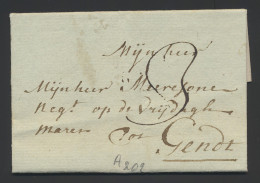 Mijnheer
Mijnheer Meresone
Negt op de vrijdagh
maret tot Gendt
8
A 202